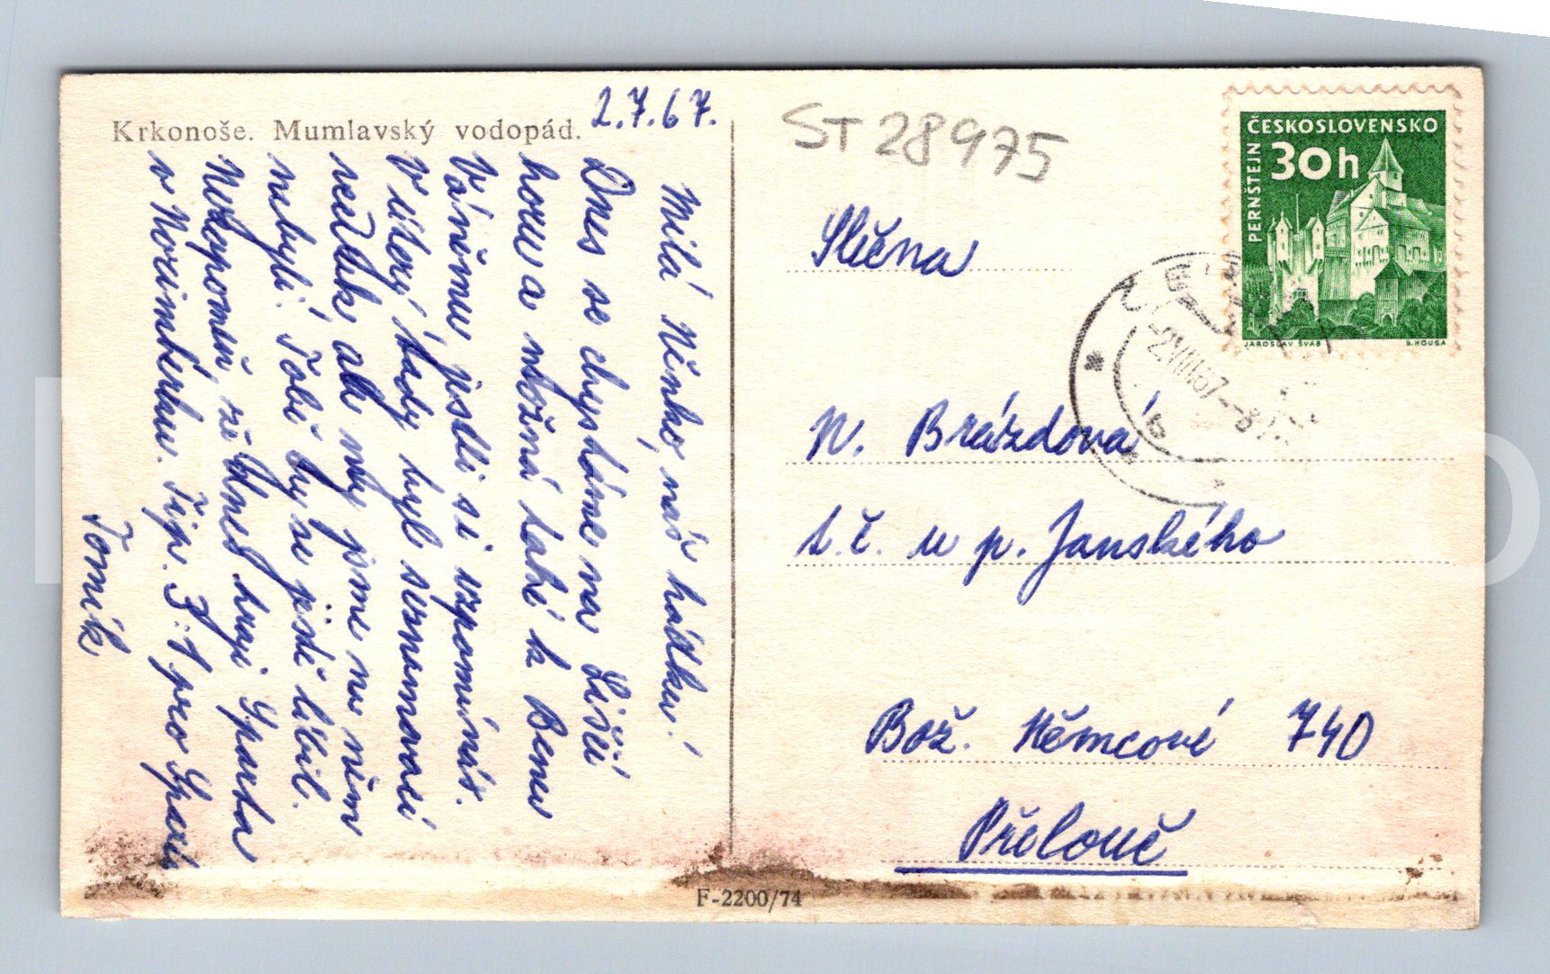 Krkonoše. Mumlavský vodopád.
2.7.67.
Milá Něnko, náš hádku!
Dnes se chystáme na Lišü
horu a možná také k Benu
Vánimu, jestli si vzpomínáš.
V úterý tady byl seznamovací
večírek, ale my jsme na něm
nebyli. Tobě by se jistě líbil.
Nezapomeň, že dnes hraje Sparta
v Norimberku. Tip. 3:1 pro Spartu
Tomík
ST 28975
Slečna
N. Brázdová
t. č. u p. Janského
Bož. Němcové 740
Přelouč
ČESKOSLOVENSKO
30h
PERNŠTEJN
JAROSLAV ŠVÁB
B. HOUSA
-2.VII.67.-8
F-2200/74